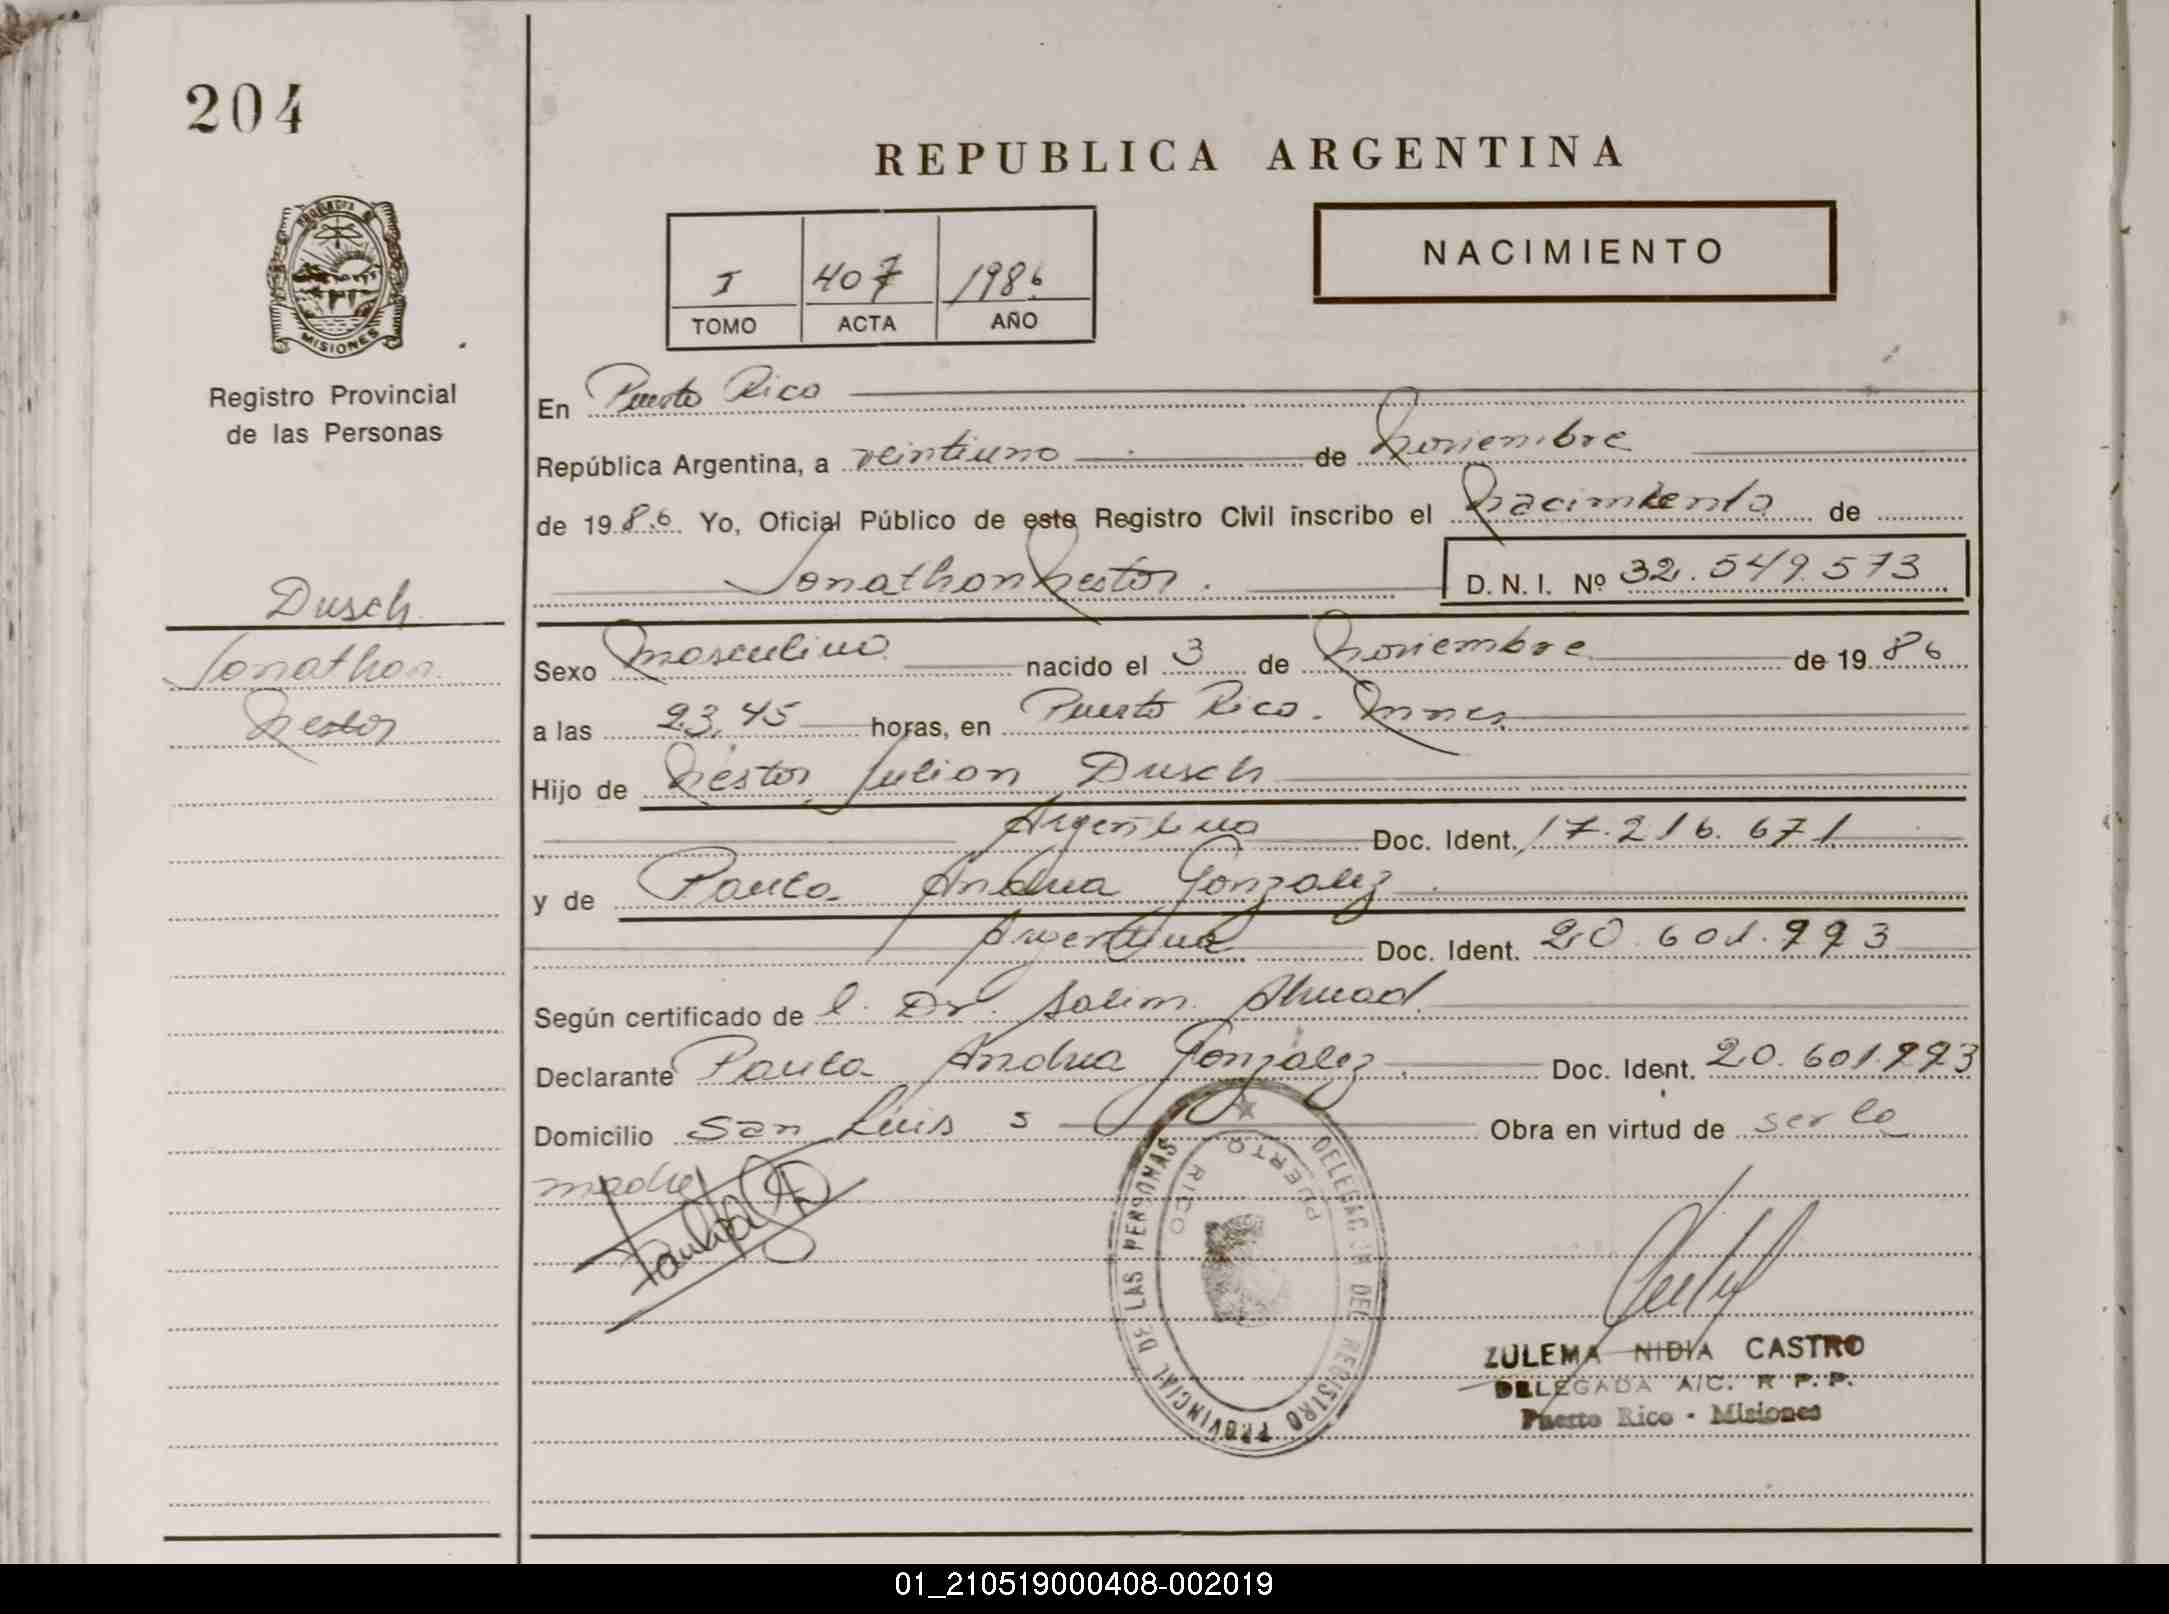 204
PROVINCIA DE
MISIONES
Registro Provincial
de las Personas
Dusch
Jonathan
Nestor
REPUBLICA ARGENTINA
I 407 1986
TOMO ACTA AÑO
NACIMIENTO
En Puerto Rico
República Argentina, a veintiuno de Noviembre
de 1986 Yo, Oficial Público de este Registro Civil inscribo el Nacimiento de
Jonathan Nestor. D. N. I. Nº 32.549.573
Sexo Masculino nacido el 3 de Noviembre de 1986
a las 23,45 horas, en Puerto Rico. Mnes.
Hijo de Nestor Julian Dusch
Argentino Doc. Ident. 17.216.671
y de Paula Andrea Gonzalez
Argentina Doc. Ident. 20.601.993
Según certificado de l. Dr. Salim Ahuad
Declarante Paula Andrea Gonzalez. Doc. Ident. 20.601.993
Domicilio San Luis s Obra en virtud de ser la
madre
DELEGACION DEL REGISTRO PROVINCIAL DE LAS PERSONAS
PUERTO RICO
ZULEMA NIDIA CASTRO
DELEGADA A/C. R. P. P.
Puerto Rico - Misiones
01_210519000408-002019